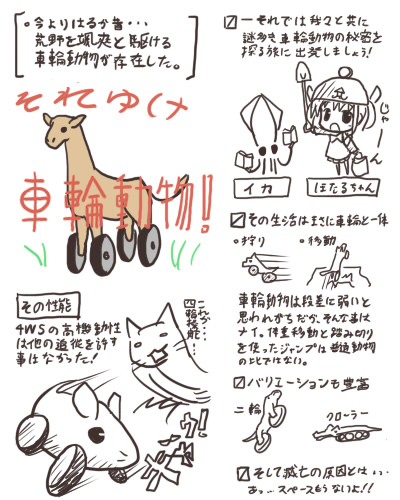 ○今よりはるか昔・・・
荒野を颯爽と駆ける
車輪動物が存在した。
それゆけ
車輪動物!
その性能
4WSの高機動性
は他の追従を許す
事はなかった!
これが・・・
四輪技能・・・
ギャッ!
―それでは我々と共に
謎多き車輪動物の秘密を
探る旅に出発しましょう!
じゃーん
イカ
ほたるちゃん
その生活はまさに車輪と一体
○狩り
○移動
車輪動物は段差に弱いと
思われがちだが、そんな事は
ナイ。体重移動と踏み切り
を使ったジャンプは普通動物
の比ではない。
バリエーションも豊富
二輪
クローラー
そして滅亡の原因とは・・・
あっ・・・スペースもうないよ!!